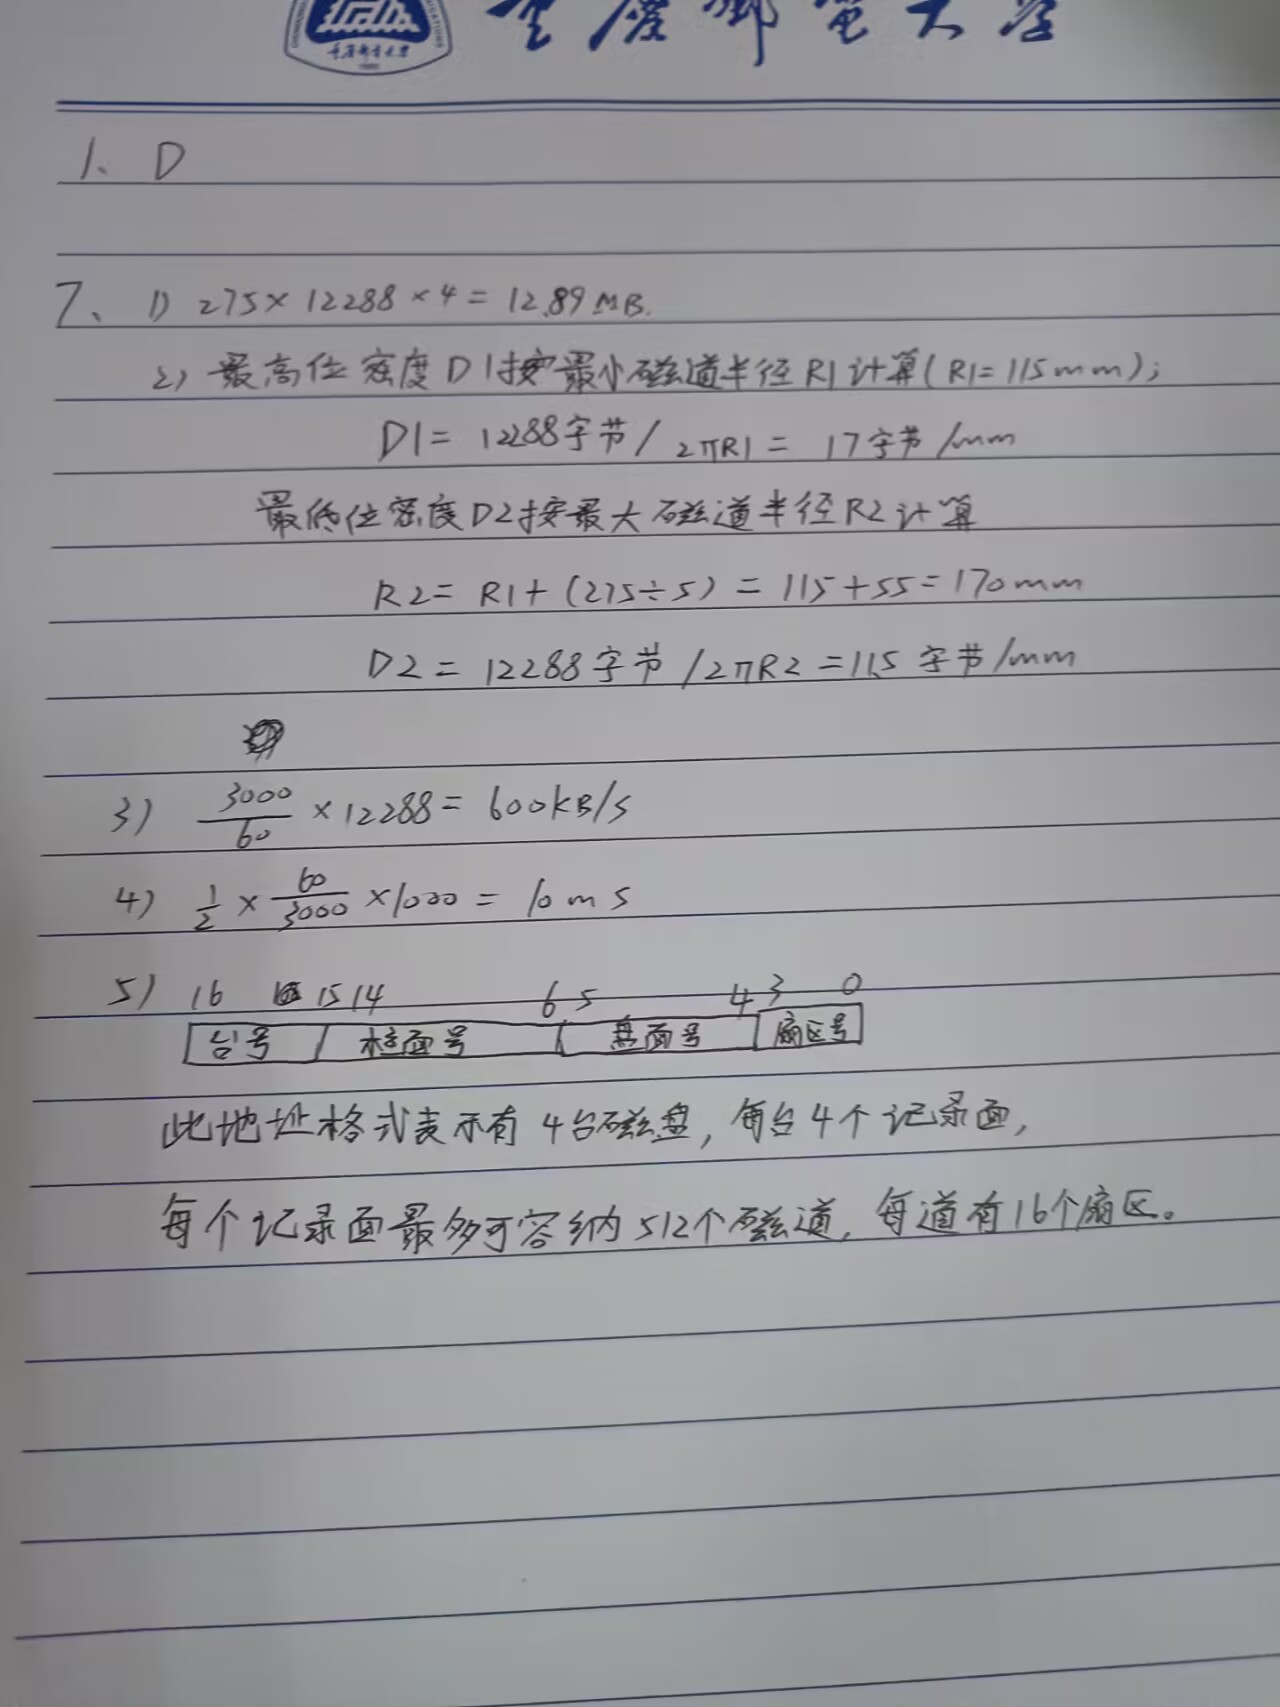 重庆邮电大学
1、D
7、1) 275×12288×4=12.89MB.
2) 最高位密度D1按最小磁道半径R1计算(R1=115mm);
D1=12288字节/2πR1=17字节/mm
最低位密度D2按最大磁道半径R2计算
R2=R1+(275÷5)=115+55=170mm
D2=12288字节/2πR2=11.5字节/mm
3) 3000/60×12288=600KB/S
4) 1/2×60/3000×1000=10ms
5) 16 15 14 6 5 4 3 0
台号 柱面号 盘面号 扇区号
此地址格式表示有4台磁盘,每台4个记录面,
每个记录面最多可容纳512个磁道,每道有16个扇区。